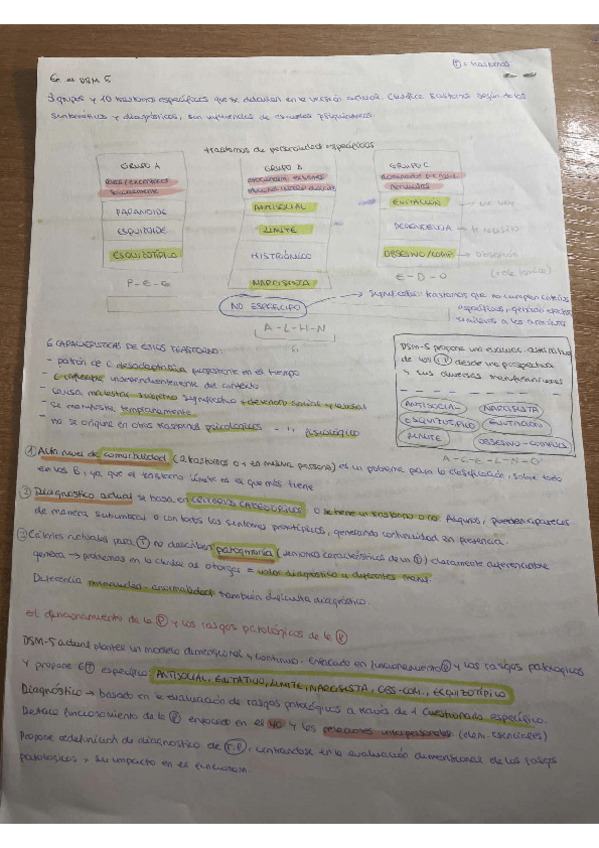 Ⓣ = trastornos
En el DSM 5
3 grupos y 10 trastornos específicos que se detallan en la versión actual. Clasifica trastorno según
sintomático y diagnósticos, sin influencias de escuelas psiquiátricas.
trastornos de personalidad específicos
GRUPO A
GRUPO B
GRUPO C
PARANOIDE
ESQUIZOIDE
ESQUIZOTÍPICO
ANTISOCIAL
LÍMITE
HISTRIÓNICO
NARCISISTA
EVITACIÓN
DEPENDENCIA
OBSESIVO/COMP.
→ Obsesión
P - E - E
E - D - O
NO ESPECÍFICO
A - L - H - N
trastornos que no cumplen criterios
específicos, generan efectos
similares a los anteriores
6 CARACTERÍSTICAS DE ESTOS TRASTORNO:
- patrón de C desadaptativa persistente en el tiempo
- C independientemente del contexto
- causa malestar subjetivo significativo + deterioro social y laboral
- se manifiesta tempranamente
- no se origina en otros trastornos psicológicos - " fisiológico
DSM-5 propone una evaluac. alternativa
de los (T.P) desde una perspectiva
y sus diversas manifestaciones
ANTISOCIAL
NARCISISTA
ESQUIZOTÍPICO
EVITACIÓN
LÍMITE
OBSESIVO-COMPULS
A - E - L - N - O
① Alto nivel de comorbilidad (2 trastornos o + en misma persona) es un problema para la clasificación, sobre todo
en los B, ya que el trastorno límite es el que más tiene
③ Diagnóstico actual se basa en CRITERIOS CATEGÓRICOS o se tiene un trastorno o no. Algunos, pueden aparecer
de manera subumbral o con todos los síntomas prototípicos, generando continuidad en presencia.
② Criterios actuales para Ⓣ no describen patognomía (síntomas característicos de un Ⓣ) claramente diferenciable
genera → problemas en la clínica al otorgar = valor diagnóstico a diferentes manif.
Diferencia normalidad-anormalidad también dificulta diagnóstico.
El funcionamiento de la Ⓟ y los rasgos patológicos de la Ⓟ
DSM-5 actual plantea un modelo dimensional y continuo. Enfocado en funcionamiento Ⓟ y los rasgos patológicos
y propone 6 Ⓣ específicos: ANTISOCIAL, EVITATIVO, LÍMITE, NARCISISTA, OBS-COM., ESQUIZOTÍPICO
Diagnóstico → basado en la evaluación de rasgos patológicos a través de 1 Cuestionario específico.
Destaca funcionamiento de la Ⓟ enfocado en el YO y las relaciones interpersonales (elem. esenciales)
Propone redefinición de diagnóstico de (T.P), centrándose en la evaluación dimensional de los rasgos
patológicos y su impacto en el funcionam.